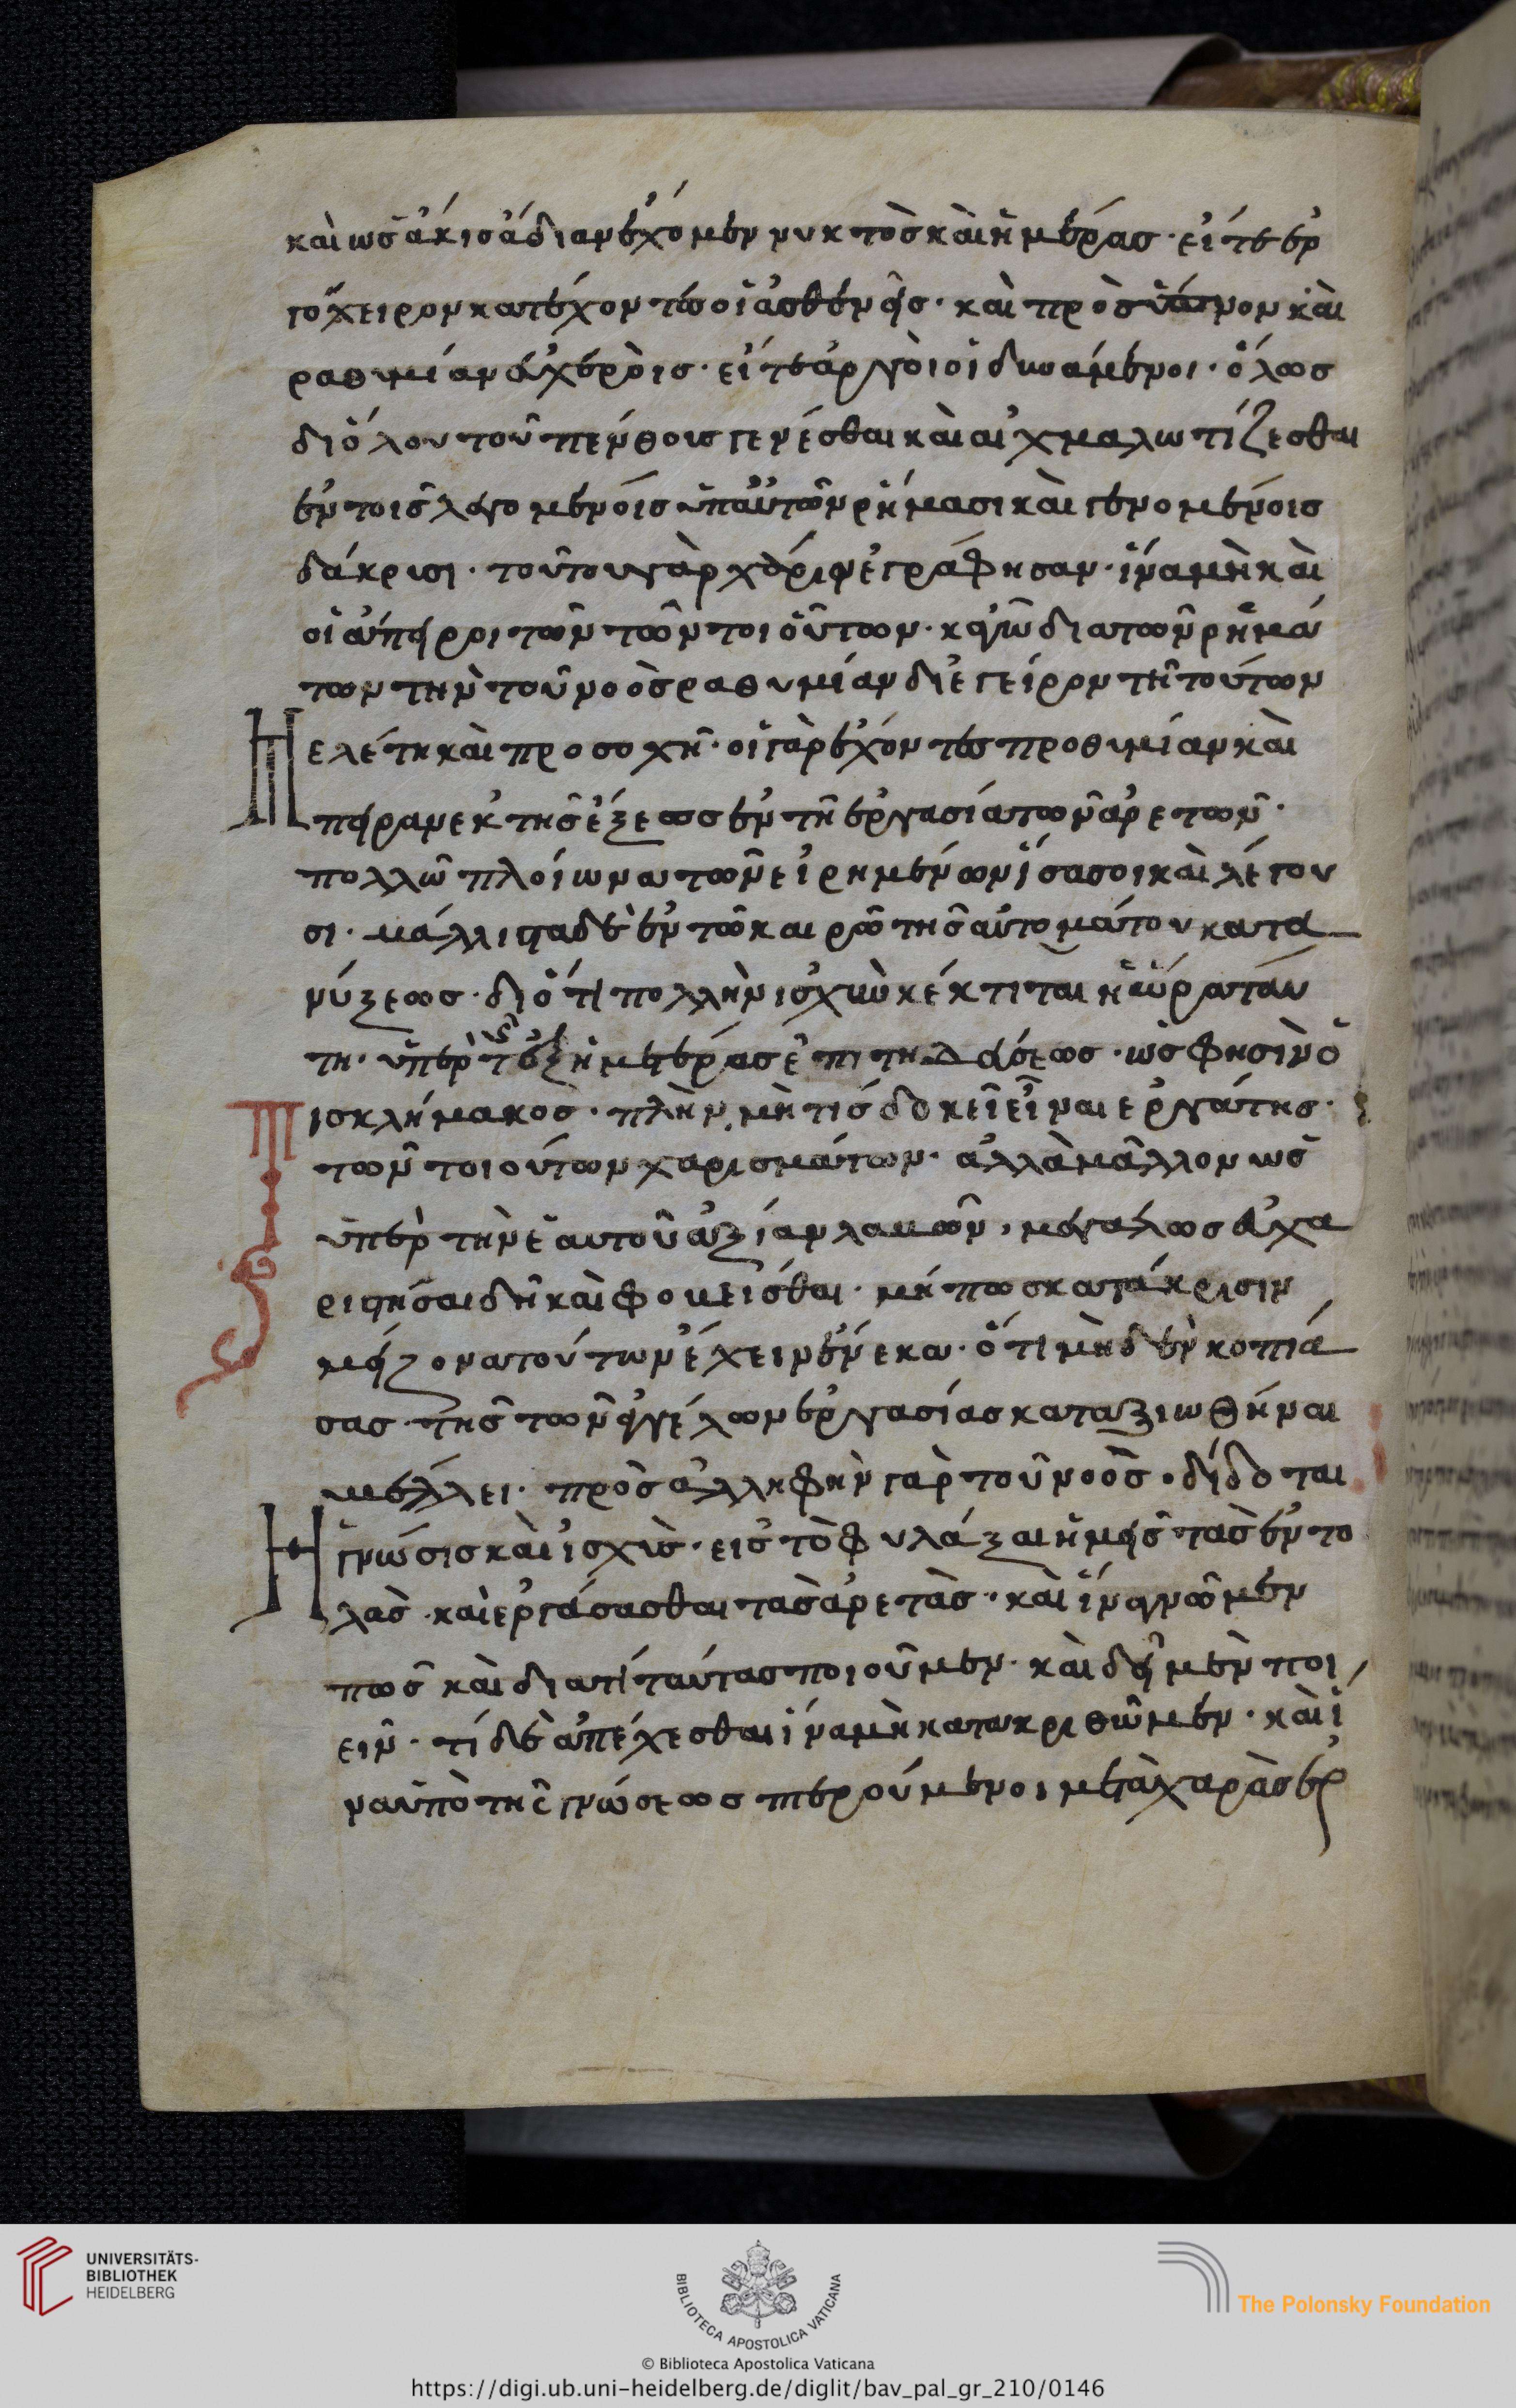 καὶ ὡσάκις ἀδιανεχόμεν νυκτὸς καὶ ἡμέρας· εἴτε ἐν
τὸ χεῖρον κατέχοντες οἱ ἀσθενεῖς· καὶ πρὸς ὕπνον καὶ
ραθυμίαν εὐχερεῖς· εἴτε ἀργοὶ οἱ δυνάμενοι· ὅλως
διόλου τοῦ πένθοις γενέσθαι καὶ αἰχμαλωτίζεσθαι
ἐν τοῖς λεγομένοις ὑπ' αὐτῶν ρήμασι καὶ γενομένοις
δάκρισι· τούτου γὰρ χάριν ἐγράφησαν· ἵνα μὴ καὶ
οἱ ἄπειροι τῶν τῶν τοιούτων· κἂν διὰ τῶν ρημά
των τὴν τοῦ νοὸς ραθυμίαν διεγείρων τῆ τούτων
ελέτη καὶ προσοχῆ· οἱ γὰρ ἔχοντες προθυμίαν καὶ
πεῖραν ἐκ τῆς ἕξεως ἐν τῆ ἐργασία τῶν ἀρετῶν·
πολλῶ πλοίωνα τῶν εἰρημένων ἴσασι καὶ λέγου
σι· μάλλιστα δὲ ἐν τῶ καιρῶ τῆς αὐτομάτου κατα
νύξεως· διότι πολλὴν ἰσχὺν κέκτιται ἡ αὐτὰν
τη· ὑπὲρ τῆς ἐξ ἡμετέρας ἐπιτηδεύσεως· ὡς φησὶν ὁ
ισ κλήμακος· πλὴν μὴ τὶς δοκεῖ εἶναι ἐργάτης·
τῶν τοιούτων χαρισμάτων· ἀλλὰ μᾶλλον ὡς
ὑπὲρ τὴν ἑαυτοῦ ἀξίαν λαβὼν, μεγάλως εὐχα
ριστῆσαι δεῖ καὶ φοβεῖσθαι· μήπως κατάκρισιν
μείζονα τούτων ἔχειν ἕνεκα· ὅτι μηδὲν κοπιά
σας· τῆς τῶν ἀγγέλων ἐργασίας καταξιωθῆναι
μέλλει· πρὸς ἀλληφὴν γὰρ τοῦ νοὸς· δίδοται
ἡ γνώσις καὶ ἰσχὺς· εἰς τὸ φυλάξαι ἡμᾶς τὰς ἐντο
λὰς· καὶ ἐργάσασθαι τὰς ἀρετὰς· καὶ ἵνα γνῶμεν
πῶς καὶ διατί ταύτας ποιοῦμεν· καὶ δεῖ μὲν ποι
εῖν· τί δὲ ἀπέχεσθαι ἵνα μὴ κατακριθῶμεν· καὶ ἵ
να ὑπὸ τῆς γνώσεως πτερούμενοι μετὰ χαρᾶς ἐρ
UNIVERSITÄTS-
BIBLIOTHEK
HEIDELBERG
BIBLIOTECA APOSTOLICA VATICANA
The Polonsky Foundation
© Biblioteca Apostolica Vaticana
https://digi.ub.uni-heidelberg.de/diglit/bav_pal_gr_210/0146